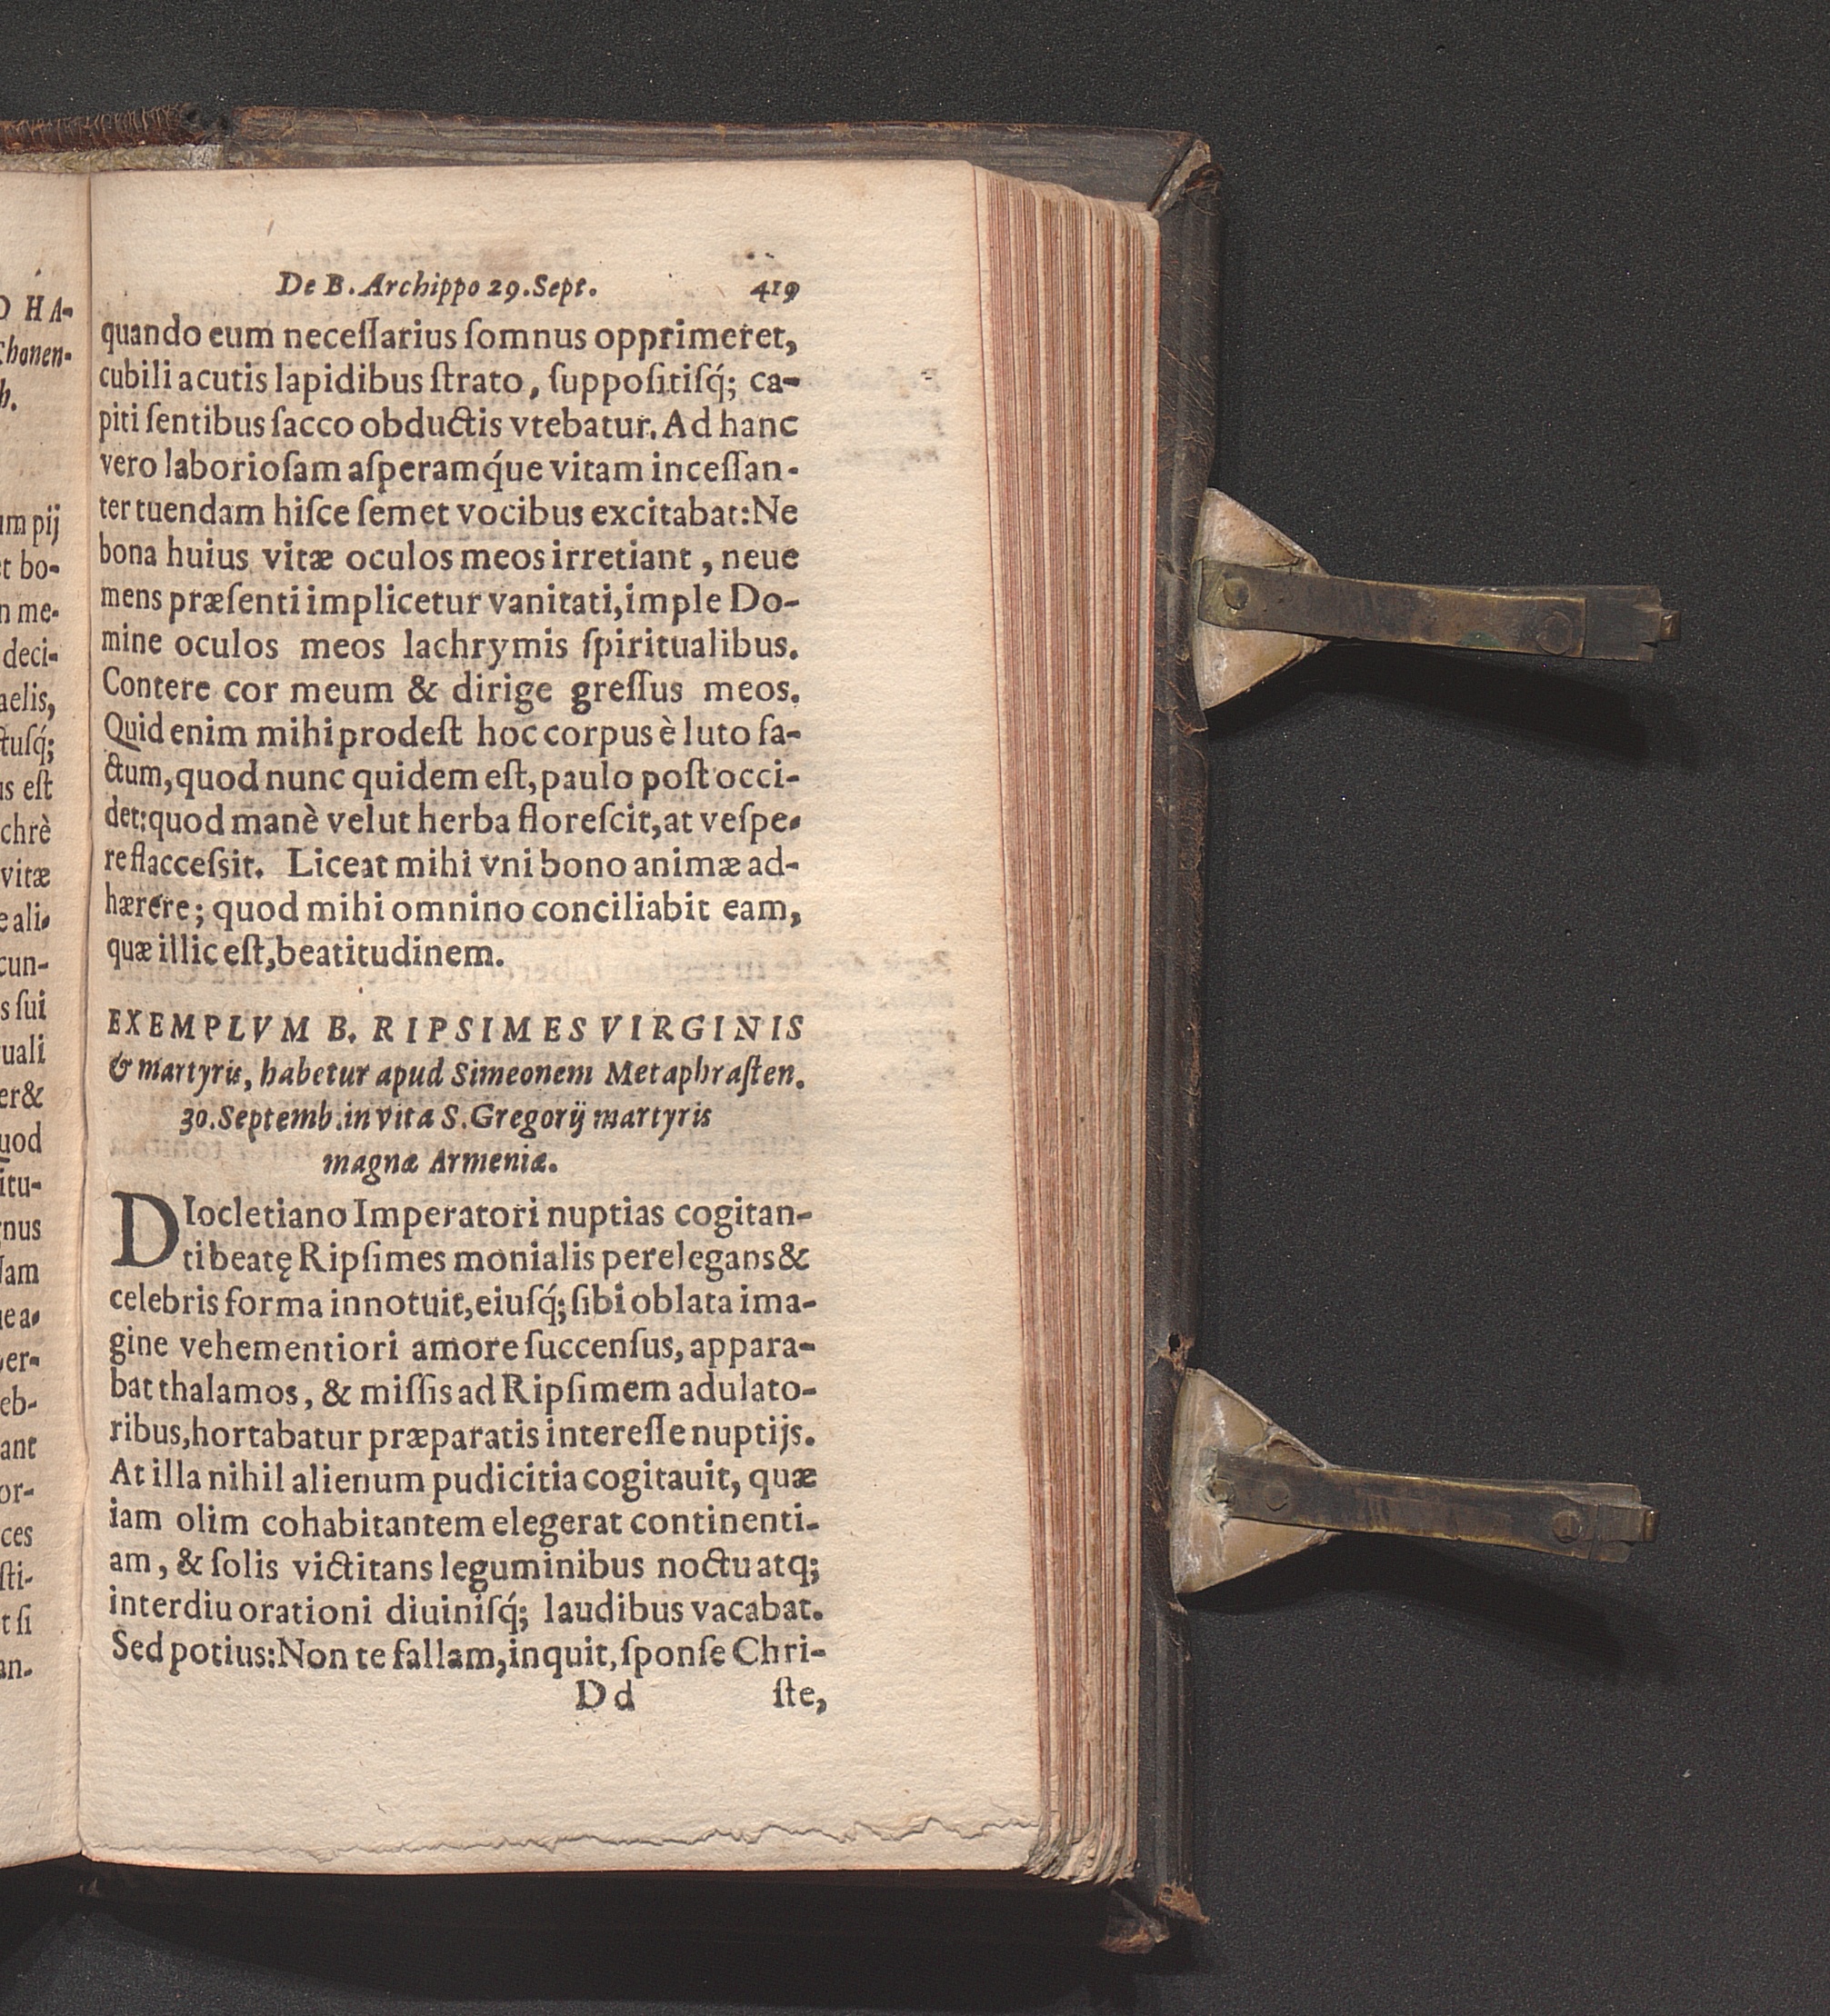 De B. Archippo 29. Sept. 419
quando eum neceſſarius ſomnus opprimeret,
cubili acutis lapidibus ſtrato, ſuppoſitiſq́; ca-
piti ſentibus ſacco obductis vtebatur. Ad hanc
vero laborioſam aſperamq́ue vitam inceſſan-
ter tuendam hiſce ſemet vocibus excitabat: Ne
bona huius vitæ oculos meos irretiant, neue
mens præſenti implicetur vanitati, imple Do-
mine oculos meos lachrymis ſpiritualibus.
Contere cor meum & dirige greſſus meos.
Quid enim mihi prodeſt hoc corpus è luto fa-
ctum, quod nunc quidem eſt, paulo poſt occi-
det: quod manè velut herba floreſcit, at veſpe-
re flacceſsit. Liceat mihi vni bono animæ ad-
hærere; quod mihi omnino conciliabit eam,
quæ illic eſt, beatitudinem.
EXEMPLVM B. RIPSIMES VIRGINIS
& martyris, habetur apud Simeonem Metaphraſten.
30. Septemb. in vita S. Gregorij martyris
magnæ Armeniæ.
DIocletiano Imperatori nuptias cogitan-
ti beatę Ripſimes monialis perelegans &
celebris forma innotuit, eiuſq́; ſibi oblata ima-
gine vehementiori amore ſuccenſus, appara-
bat thalamos, & miſſis ad Ripſimem adulato-
ribus, hortabatur præparatis intereſſe nuptijs.
At illa nihil alienum pudicitia cogitauit, quæ
iam olim cohabitantem elegerat continenti-
am, & ſolis victitans leguminibus noctu atq;
interdiu orationi diuiniſq́; laudibus vacabat.
Sed potius: Non te fallam, inquit, ſponſe Chri-
D d ſte,
O HA-
Chonen-
b.
um pij
et bo-
n me-
deci-
aelis,
ctuſq́;
us eſt
chrè
vitæ
e ali-
cun-
s ſui
uali
er &
quod
itu-
nus
Nam
ue a-
per-
eb-
ant
or-
ces
ſti-
t ſi
an-